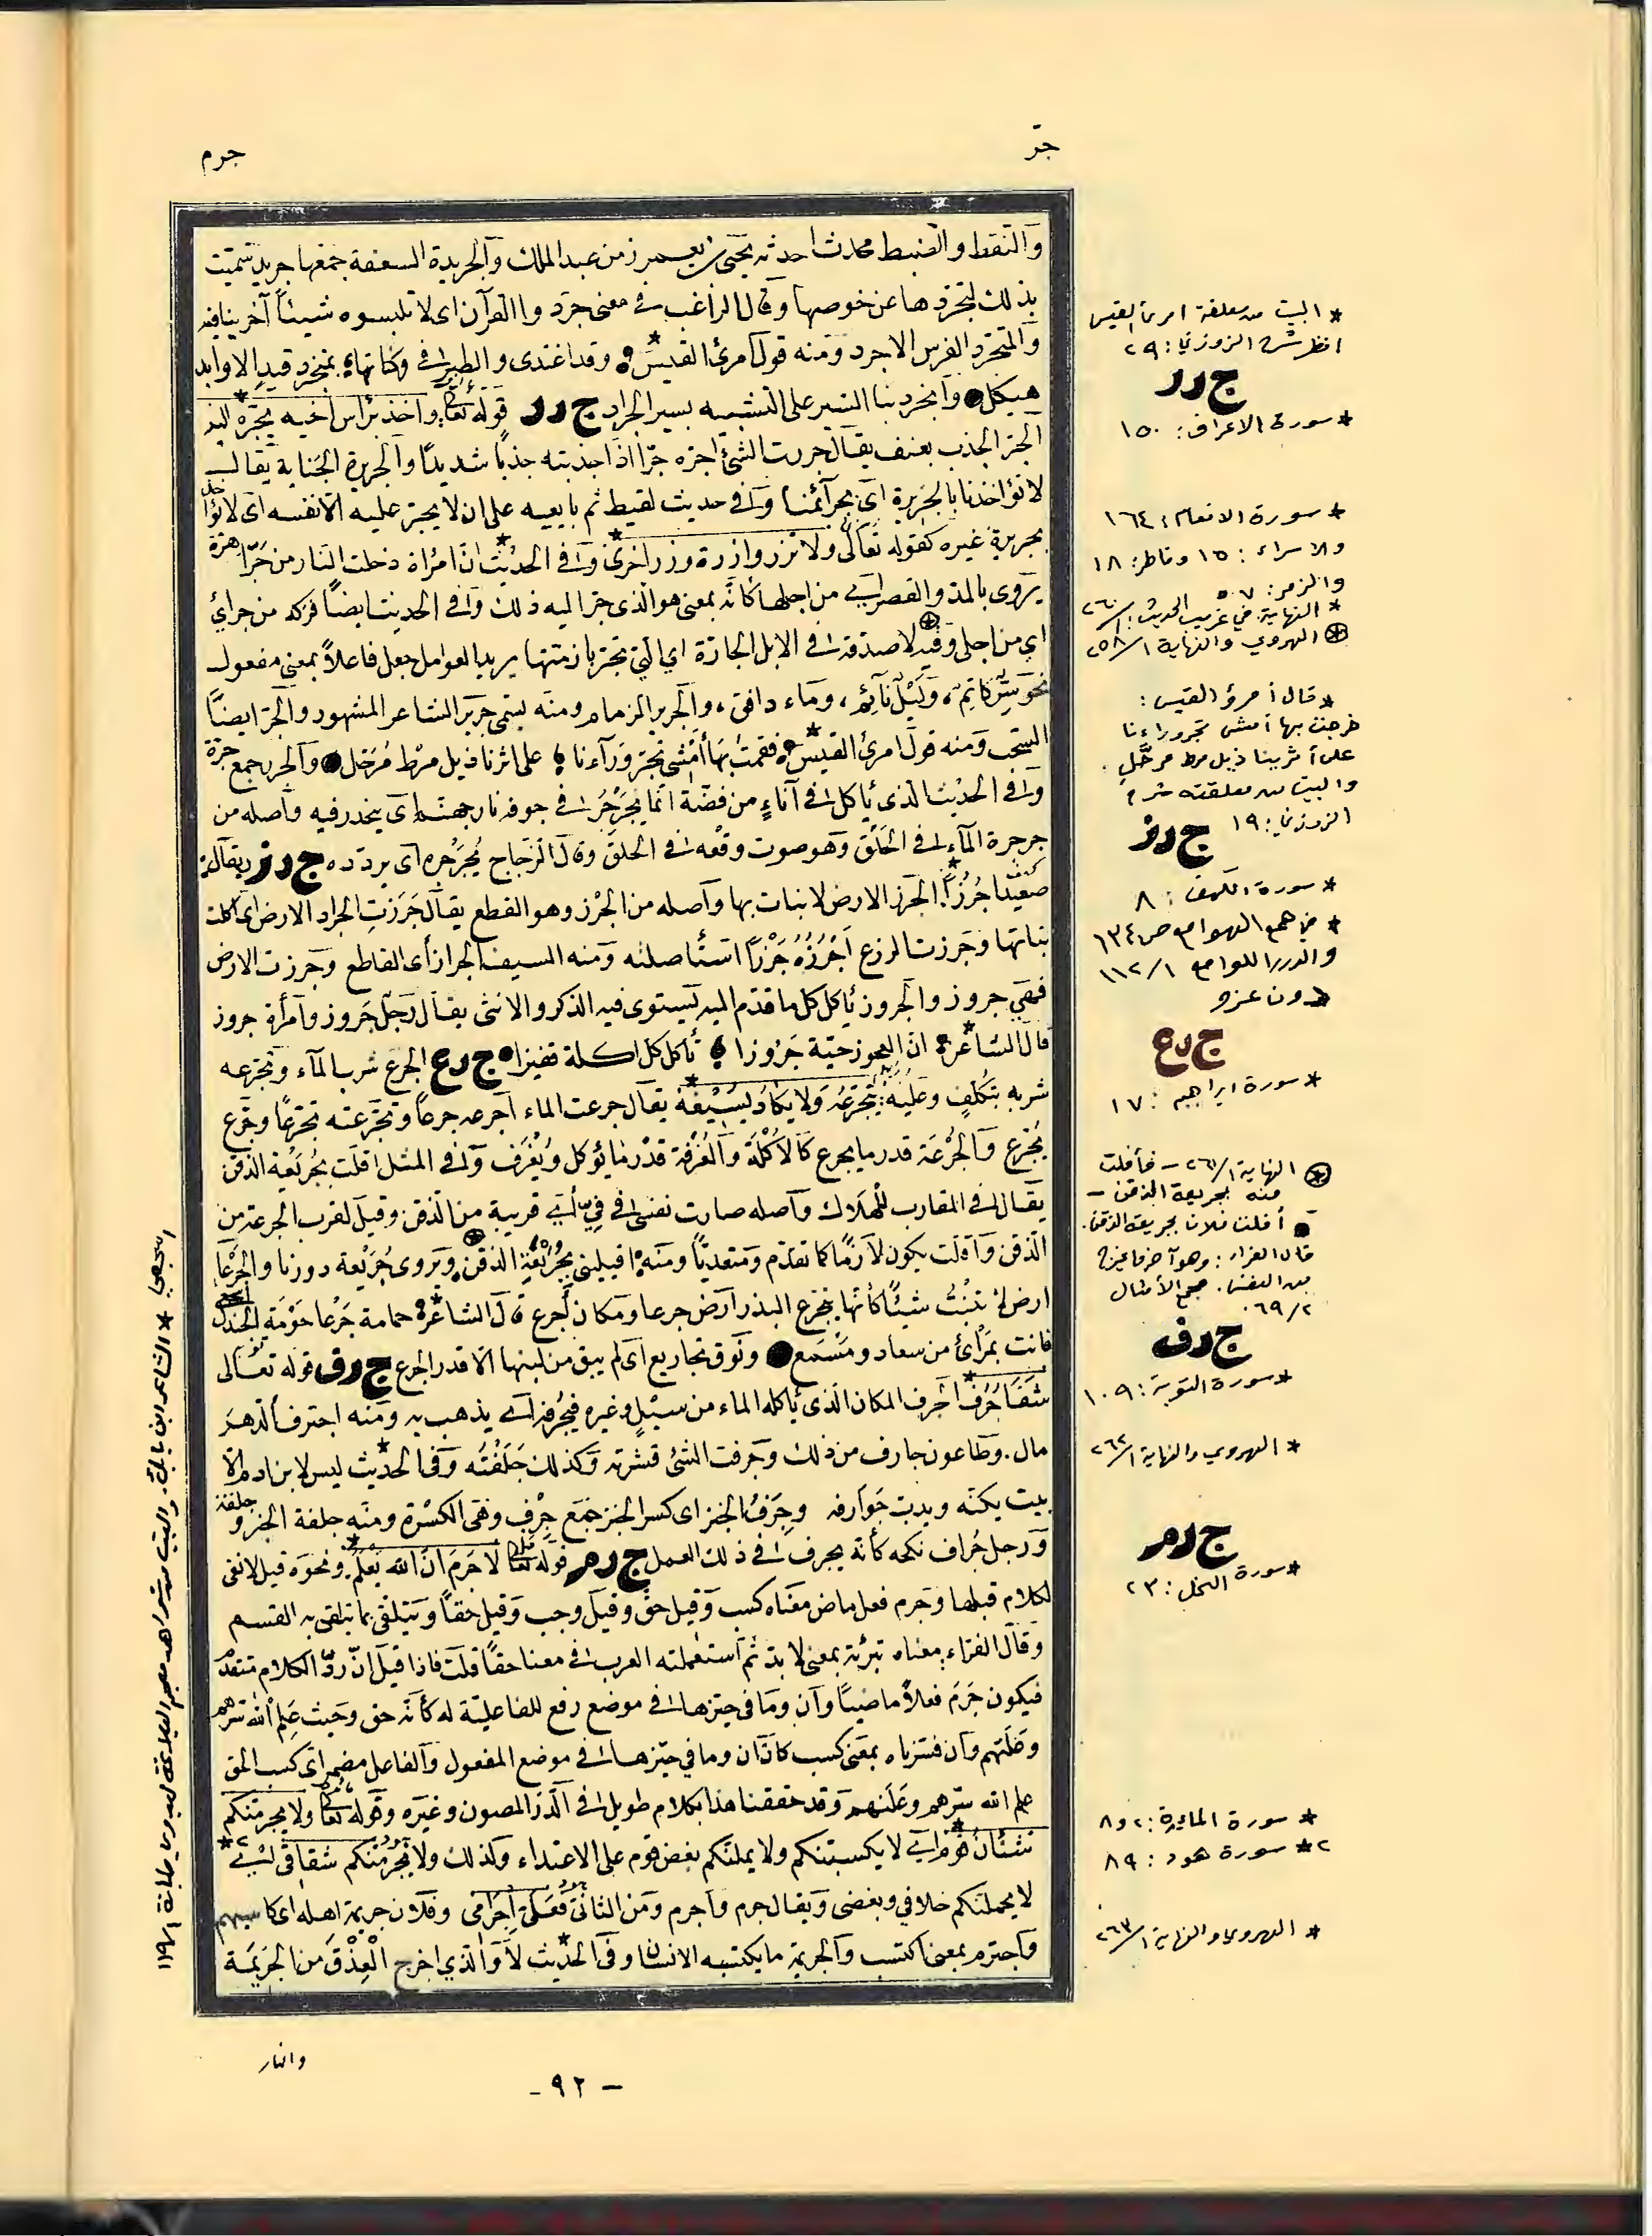 جرّ
جرم
والنقط والضبط محدث احدثه يحيى بن يعمر زمن عبد الملك والجريدة السعفة جمعها جريد سميت
بذلك لتجردها عن خوصها وقال الراغب في معنى جردوا القرآن اى لا تلبسوه شيئاً آخر ينافيه
والمتجرد الفرس الاجرد ومنه قول امرئ القيس وقد اغتدى والطير في وكناتها بمنجرد قيد الاوابد
هيكل وانجرد بنا السير على التشبيه بسير الجراد ج ر ر قوله تعالى واخذ براس اخيه يجره اليه
الجر الجذب بعنف يقال جررت الشئ اجره جرّا اذا جذبته جذباً شديداً والجريرة الجناية يقال
لا تؤاخذنا بالجريرة اى بجرآئمنا وفي حديث لقيط ثم بايعه على ان لا يجر عليه الا نفسه اى لا يؤاخذ
بجريرة غيره كقوله تعالى ولا تزر وازرة وزر اخرى وفي الحديث انّ امرأة دخلت النار من جرّا هرة
يروى بالمد والقصر اي من اجلها كانّه بمعنى هو الذى جر اليه ذلك وفي الحديث ايضاً فركه من جراي
اي من اجلى وفيه لا صدقة في الابل الجارّة اي التي تجر بازمتها يريد العوامل جعل فاعلاً بمعنى مفعول
نحو سرّ كاتم، وليل نآئم، وماء دافق، والجرير الزمام ومنه يسمى جرير الشاعر المشهور والجر ايضاً
السحب ومنه قول امرئ القيس فقمت بها أمشى تجر ورآءنا على اثرنا ذيل مرط مرحّل والجر جمع جرّة
وفي الحديث الذى يأكل في آناء من فضة انما يجرجر في جوفه نار جهنم اى يحدر فيه واصله من
جرجرة المآء في الحلق وهو صوت وقعه في الحلق وقال الزجاج يجرجره اى يردده ج ر ز
صعيدا جرزاً الجرز الارض لا نبات بها وآصله من الجرز وهو القطع يقال جرزت الجراد الارض اى اكلت
نباتها وجرزت الزرع اجرزه جرزاً استأصلته ومنه السيف الجراز أى القاطع وجرزت الارض
فهي جروز والجروز يأكل كل ما قدّم اليه يستوى فيه الذكر والانثى يقال رجل جروز وامرأة جروز
قال الشاعر انّ العجوز حيّة جروزا تأكل كل اكلة قفيزا ج ر ع الجرع شرب المآء وتجرعه
شربه بتكلف وعليه يتجرّعه ولا يكاد يسيغه يقال جرعت الماء اجرعه جرعاً وتجرعته تجرعاً وجرع
يجرع والجرعة قدر ما يجرع كالاكلة والغرفة قدر ما يؤكل ويغرف وفي المثل افلت بجريعة الذقن
يقال في المقارب للهلاك واصله صارت نفسى في فيّ أي قريبة من الذقن وقيل لقرب الجرعة من
الذقن وافلت يكون لازماً كما تقدّم ومتعدياً ومنه افيلتني بجريعة الذقن ويروى جريعة دون با والجرعا
ارض لا تنبت شيئاً كأنها تجرع البذر ارض جرعا ومكان أجرع قال الشاعر حمامة جرعا حومة الجندل اسجعي
فانت بمرأى من سعاد ومسمع ونوق مجاريع اى لم يبق من لبنها الا قدر الجرع ج ر ف قوله تعالى
شفا جرف الجرف المكان الذى يأكله الماء من سيل وغيره فيجرفه اى يذهب به ومنه اجترف الدهر
مال. وطاعون جارف من ذلك وجرفت الشئ قشرته وكذلك جلفته وفي الحديث ليس لابن ادم الا
بيت يكنه وجرف الخبز اى كسر الخبز جمع جرف وهي الكسرة ومنه جلفة الخبز وجلفته
ورجل جُراف نكحه كأنه يجرف في ذلك العمل ج ر م قوله تعالى لا جرم انّ الله يعلم ونحوه قيل لا نفى
لكلام قبلها وجرم فعل ماض معناه كسب وقيل حق وقيل وجب وقيل حقاً ويتلقى بما يتلقى به القسم
وقال الفراء معناه تبرئة بمعنى لا بد ثم استعملته العرب في معنا حقاً قلت فاذا قيل انّ ردّ الكلام متقدم
فيكون جَرَمَ فعلاً ماضياً وان وما في حيزها في موضع رفع للفاعلية له كأنه حق وحيث علم الله سرهم
وعلنهم وان فسرناه بمعنى كسب كان ان وما في حيزها في موضع المفعول والفاعل مضمر اى كسب الحق
علم الله سرهم وعلنهم وقد حققنا هذا بكلام طويل في الدّر المصون وغيره وقوله تعالى ولا يجرمنكم
شنئان قوم اي لا يكسبنكم ولا يحملنكم بغض قوم على الاعتداء وكذلك ولا يجرمنكم شقاقي اي
لا يحملنكم خلافي وبغضى ويقال جرم واجرم ومن الثانى فعلىّ اجرامى وفلان جريمة اهله اى كاسبهم
واجترم بمعنى اكتسب والجريمة ما يكتسبه الانسان وفي الحديث لا والذي اخرج العذق من الجريمة
والنار
- ٩٢ -
* البيت من معلقة امرئ القيس
انظر شرح الزوزني: ٢٩
ج ر ر
* سورة الاعراف: ١٥٠
* سورة الانعام: ١٦٤
والاسراء: ١٥ وفاطر: ١٨
والزمر: ٧
* النهاية في غريب الحديث: ١/٢٦٠
⊕ الهروي والنهاية ١/٢٥٨
* قال امرؤ القيس:
خرجت بها أمشى تجر وراءنا
على أثرينا ذيل مرط مرحّل.
والبيت من معلقته شرح
الزوزني: ١٩
ج ر ز
* سورة الكهف: ٨
* في همع الهوامع ص ١٣٤
والدرر اللوامع ١/١١٢
دون عزو
ج ر ع
* سورة ابراهيم: ١٧
⊛ النهاية ١/٢٦١ - فأفلت
منه بجريعة الذقن -
أفلت فلان بجريعة الذقن.
قال الفراء: وهو آخر ما يخرج
من النفس. مجمع الأمثال
٢/٦٩.
ج ر ف
* سورة التوبة: ١٠٩
* الهروي والنهاية ١/٢٦٢
ج ر م
* سورة النحل: ٢٣
* سورة المائدة: ٢ و ٨
٢* سورة هود: ٨٩
* الهروي والنهاية ١/٢٦٣
اسجعي * الشاعر ابن بابك. والبيت من شواهد معجم البلاغة لبدوي طبانة ١/١١٩